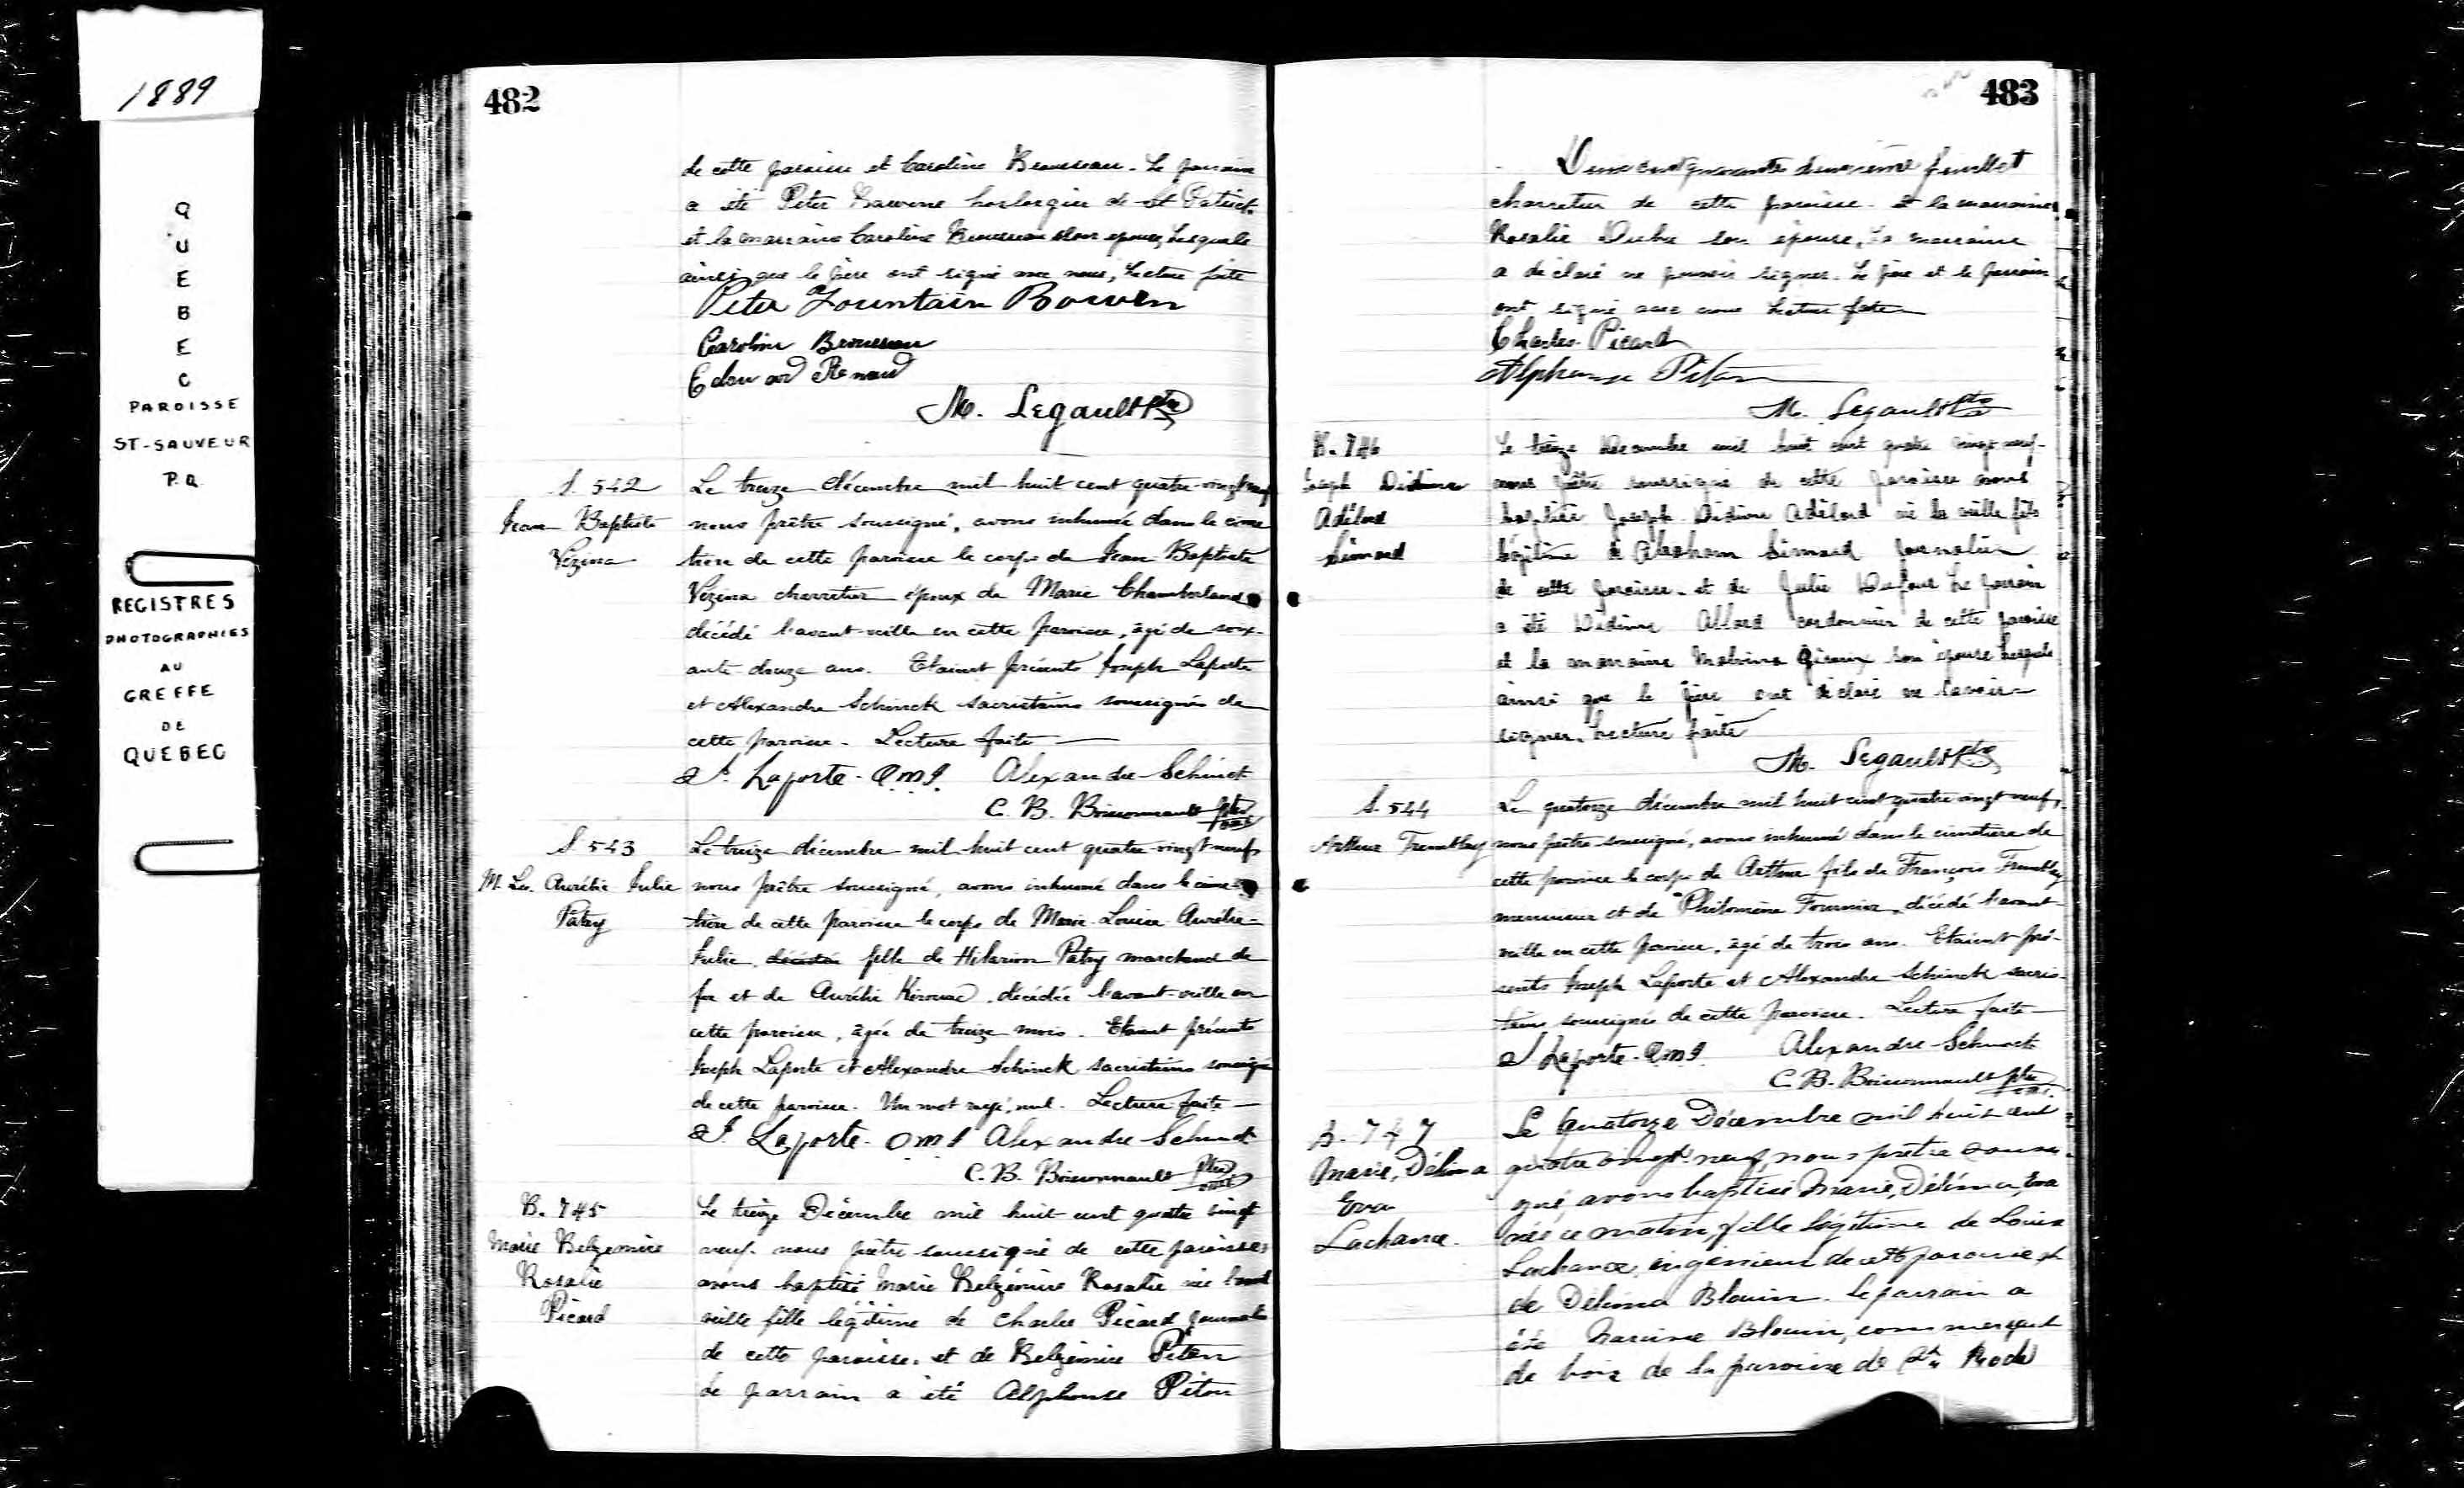 1889
QUEBEC
PAROISSE
ST-SAUVEUR
P.Q.
REGISTRES
PHOTOGRAPHIES
AU
GREFFE
DE
QUEBEC
482
de cette paroisse et Caroline Brousseau. Le parrain
a été Peter horloger de St Patrick
et la marraine Caroline Brousseau son épouse, lesquels
ainsi que le père ont signé avec nous, Lecture faite
Peter Fountain Bowen
Caroline Brousseau
Edouard Renaud
M. Legault Ptre
S. 542
Jean Baptiste
Vézina
Le treize décembre mil huit cent quatre-vingt neuf
nous prêtre soussigné, avons inhumé dans le cime
tière de cette paroisse le corps de Jean Baptiste
Vézina charretier époux de Marie Chamberland
décédé l'avant-veille en cette paroisse, âgé de soix-
ante-douze ans. Etaient présents Joseph Laporte
et Alexandre Schinck sacristains soussignés de
cette paroisse. Lecture faite
J. Laporte. O.M.I. Alexandre Schinck
C. B. Boissonnault ptre omi
S 543
M. Ls. Aurélie Julie
Patry
Le treize décembre mil huit cent quatre-vingt neuf
nous prêtre soussigné, avons inhumé dans le cime
tière de cette paroisse le corps de Marie-Louise-Aurélie-
Julie décédée fille de Hilarion Patry marchand de
fer et de Aurélie Kirouac, décédée l'avant-veille en
cette paroisse, âgée de treize mois. Etaient présents
Joseph Laporte et Alexandre Schinck sacristains soussignés
de cette paroisse. Un mot rayé, nul. Lecture faite
J. Laporte. O.M.I Alexandre Schinck
C. B. Boissonnault ptre omi
B. 745
Marie Belzemire
Rosalie
Picard
Le treize Décembre mil huit cent quatre vingt
neuf. nous prêtre soussigné de cette paroisse
avons baptisé Marie Belzémire Rosalie née l'avant
veille fille légitime de Charles Picard journalier
de cette paroisse. et de Belzemire Piton
Le parrain a été Alphonse Piton
483
Deux cent quarante deuxième feuillet
charretier de cette paroisse. et la marraine
Rosalie Dube son épouse, La marraine
a déclaré ne pouvoir signer. Le père et le parrain
ont signé avec nous Lecture faite
Charles Picard
Alphonse Piton
M. Legault Ptre
B. 746
Joseph Didime
Adélard
Simard
Le treize Décembre mil huit cent quatre vingt neuf
nous prêtre soussigné de cette paroisse avons
baptisé Joseph Didime Adélard né la veille fils
légitime de Abraham Simard journalier
de cette paroisse. et de Julie Dufour Le parrain
a été Didime Allard cordonnier de cette paroisse
et la marraine Malvina Giroux son épouse lesquels
ainsi que le père ont déclaré ne savoir
signer. Lecture faite
M. Legault Ptre
S. 544
Arthur Tremblay
Le quatorze décembre mil huit cent quatre vingt neuf,
nous prêtre soussigné, avons inhumé dans le cimetière de
cette paroisse le corps de Arthur fils de François Tremblay
menuisier et de Philomène Fournier, décédé l'avant-
veille en cette paroisse, âgé de trois ans. Etaient pré-
sents Joseph Laporte et Alexandre Schinck sacris-
tains soussignés de cette paroisse. Lecture faite
J Laporte. O.M.I. Alexandre Schinck
C. B. Boissonnault ptre omi.
B. 747
Marie, Délima
Eva
Lachance.
Le Quatorze Décembre mil huit cent
quatre vingt-neuf, nous prêtre soussi-
gné avons baptisé Marie, Délima, Eva
née ce matin, fille légitime de Louis
Lachance, ingénieur de cette paroisse et
de Délima Blouin. le parrain a
été Narcisse Blouin, commerçant
de bois de la paroisse de St Roch